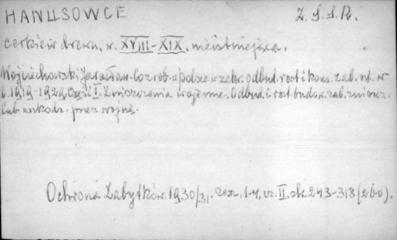 HANUSOWCE Z.S.S.R.
cerkiew drewn., w. XVIII-XIX, nieistniejąca.
Wojciechowski Jarosław. Co zrob. w Polsce w zakr. odbud. rest. i kons. zab. np. w
l. 1919-1929. Część I. Zniszczenia wojenne. Odbud. i rest. budow. zab. zniszcz.
lub uszkodz. przez wojnę.
Ochrona Zabytków. 1930/31. zesz. 1-4, cz. II. str. 243-318 (260).